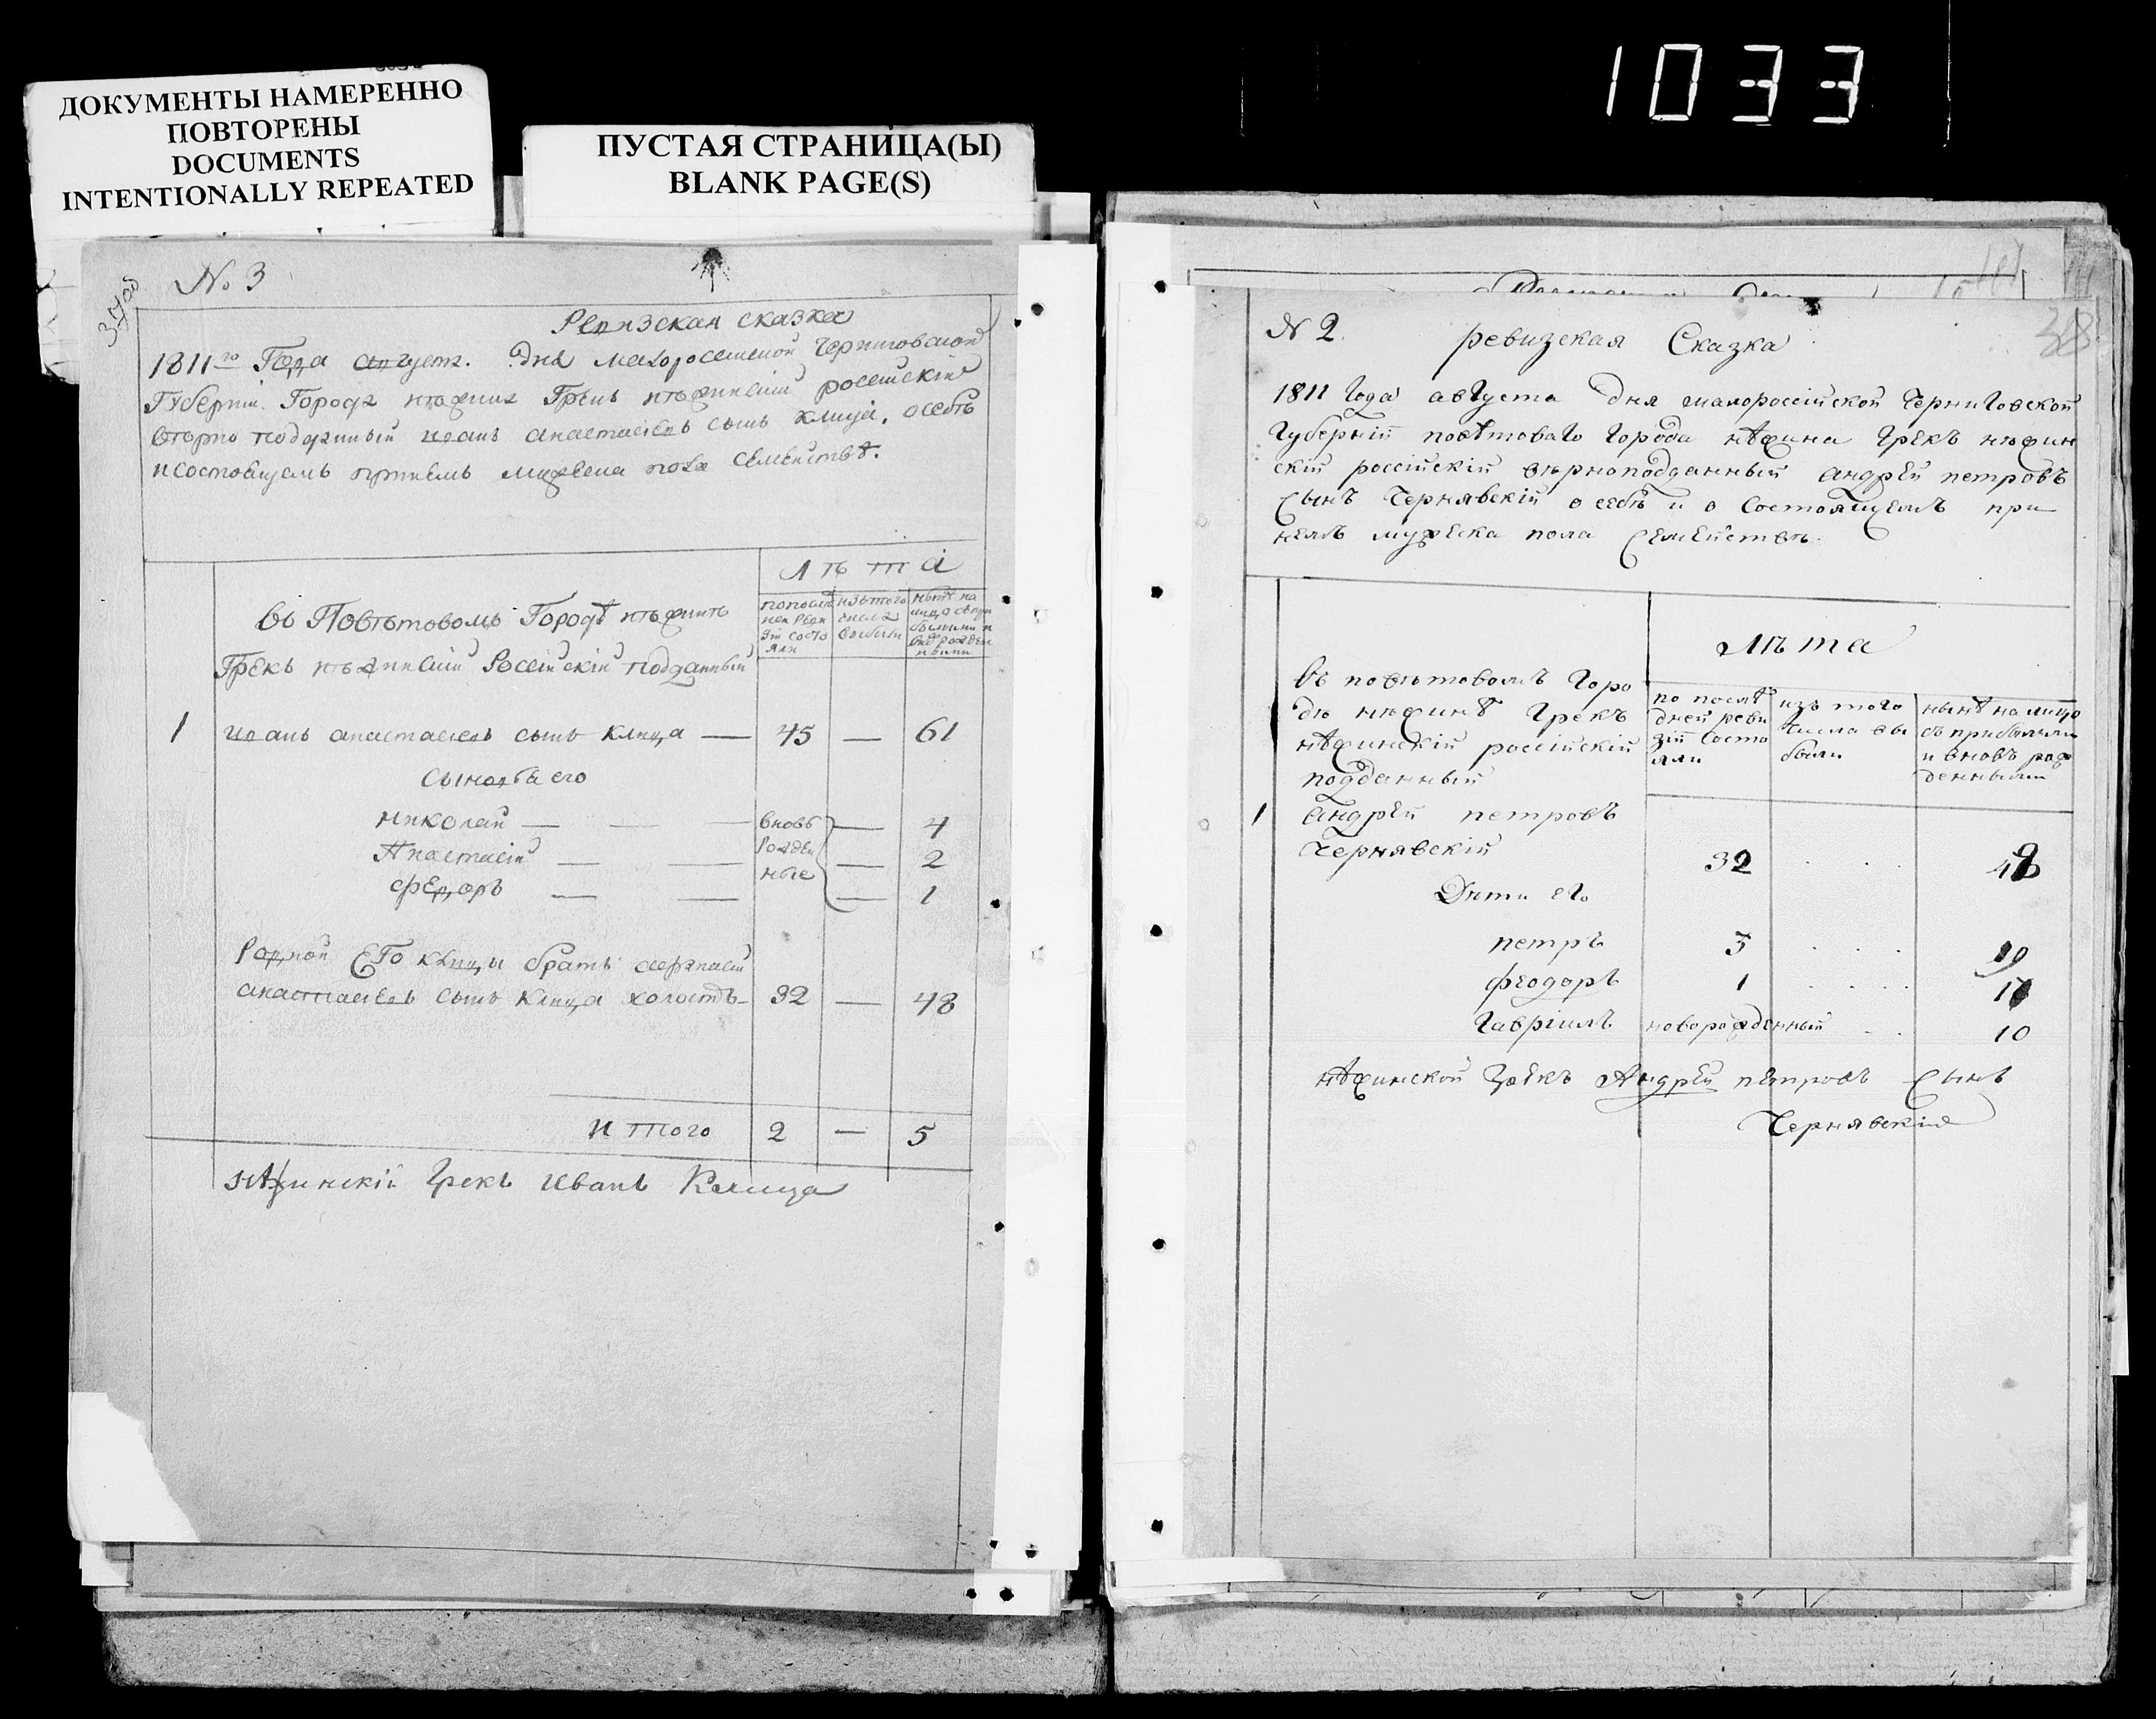 1033
ДОКУМЕНТЫ НАМЕРЕННО
ПОВТОРЕНЫ
DOCUMENTS
INTENTIONALLY REPEATED
ПУСТАЯ СТРАНИЦА(Ы)
BLANK PAGE(S)
№ 3
Ревизская сказка
1811го Года августа дня малоросейской Черниговской
Губернии Города нѣжина Грекъ нѣжинский росейский
вѣрно подданный иванъ анастасиевъ сынъ клица, осебѣ
исостоящемъ принемъ мужеска пола семействѣ.
Лѣта
въ Повѣтовомъ Городѣ нѣжинѣ
Грекъ нѣжинский Россійскій подданный
1 иванъ анастасиевъ сынъ клица — 45 — 61
сыновья его
николай — вновь — 4
Анастасій — рожден — 2
федоръ — ные — 1
Родной Его клицы братъ
анастасиевъ сынъ клица холостъ 32 — 48
итого 2 — 5
нѣжинскій Грекъ иванъ Клица
N 2
ревизская Сказка
1811 Года августа дня малороссійской Черниговской
Губерніи повѣтоваго Города нѣжина Грекъ нѣжин
скій россійскій вѣрноподданный андрей петровъ
Сынъ Чернявскій о себѣ и о Состоящемъ при
немъ мужеска пола Семействѣ.
Лѣта
въ повѣтовомъ Горо
дѣ нѣжинѣ Грекъ
нѣжинскій россійскій
подданный
по послѣ
дней реви
зіи состо
яли
изъ того
числа вы
были
нынѣ на лицо
съ прибылыми
и вновь рож
денными
1 андрей петровъ
Чернявскій 32
Дѣти его
петръ 3 19
феодоръ 1
Гавріилъ новорожденный 10
нѣжинской Грекъ Андрей петровъ Сынъ
Чернявскій